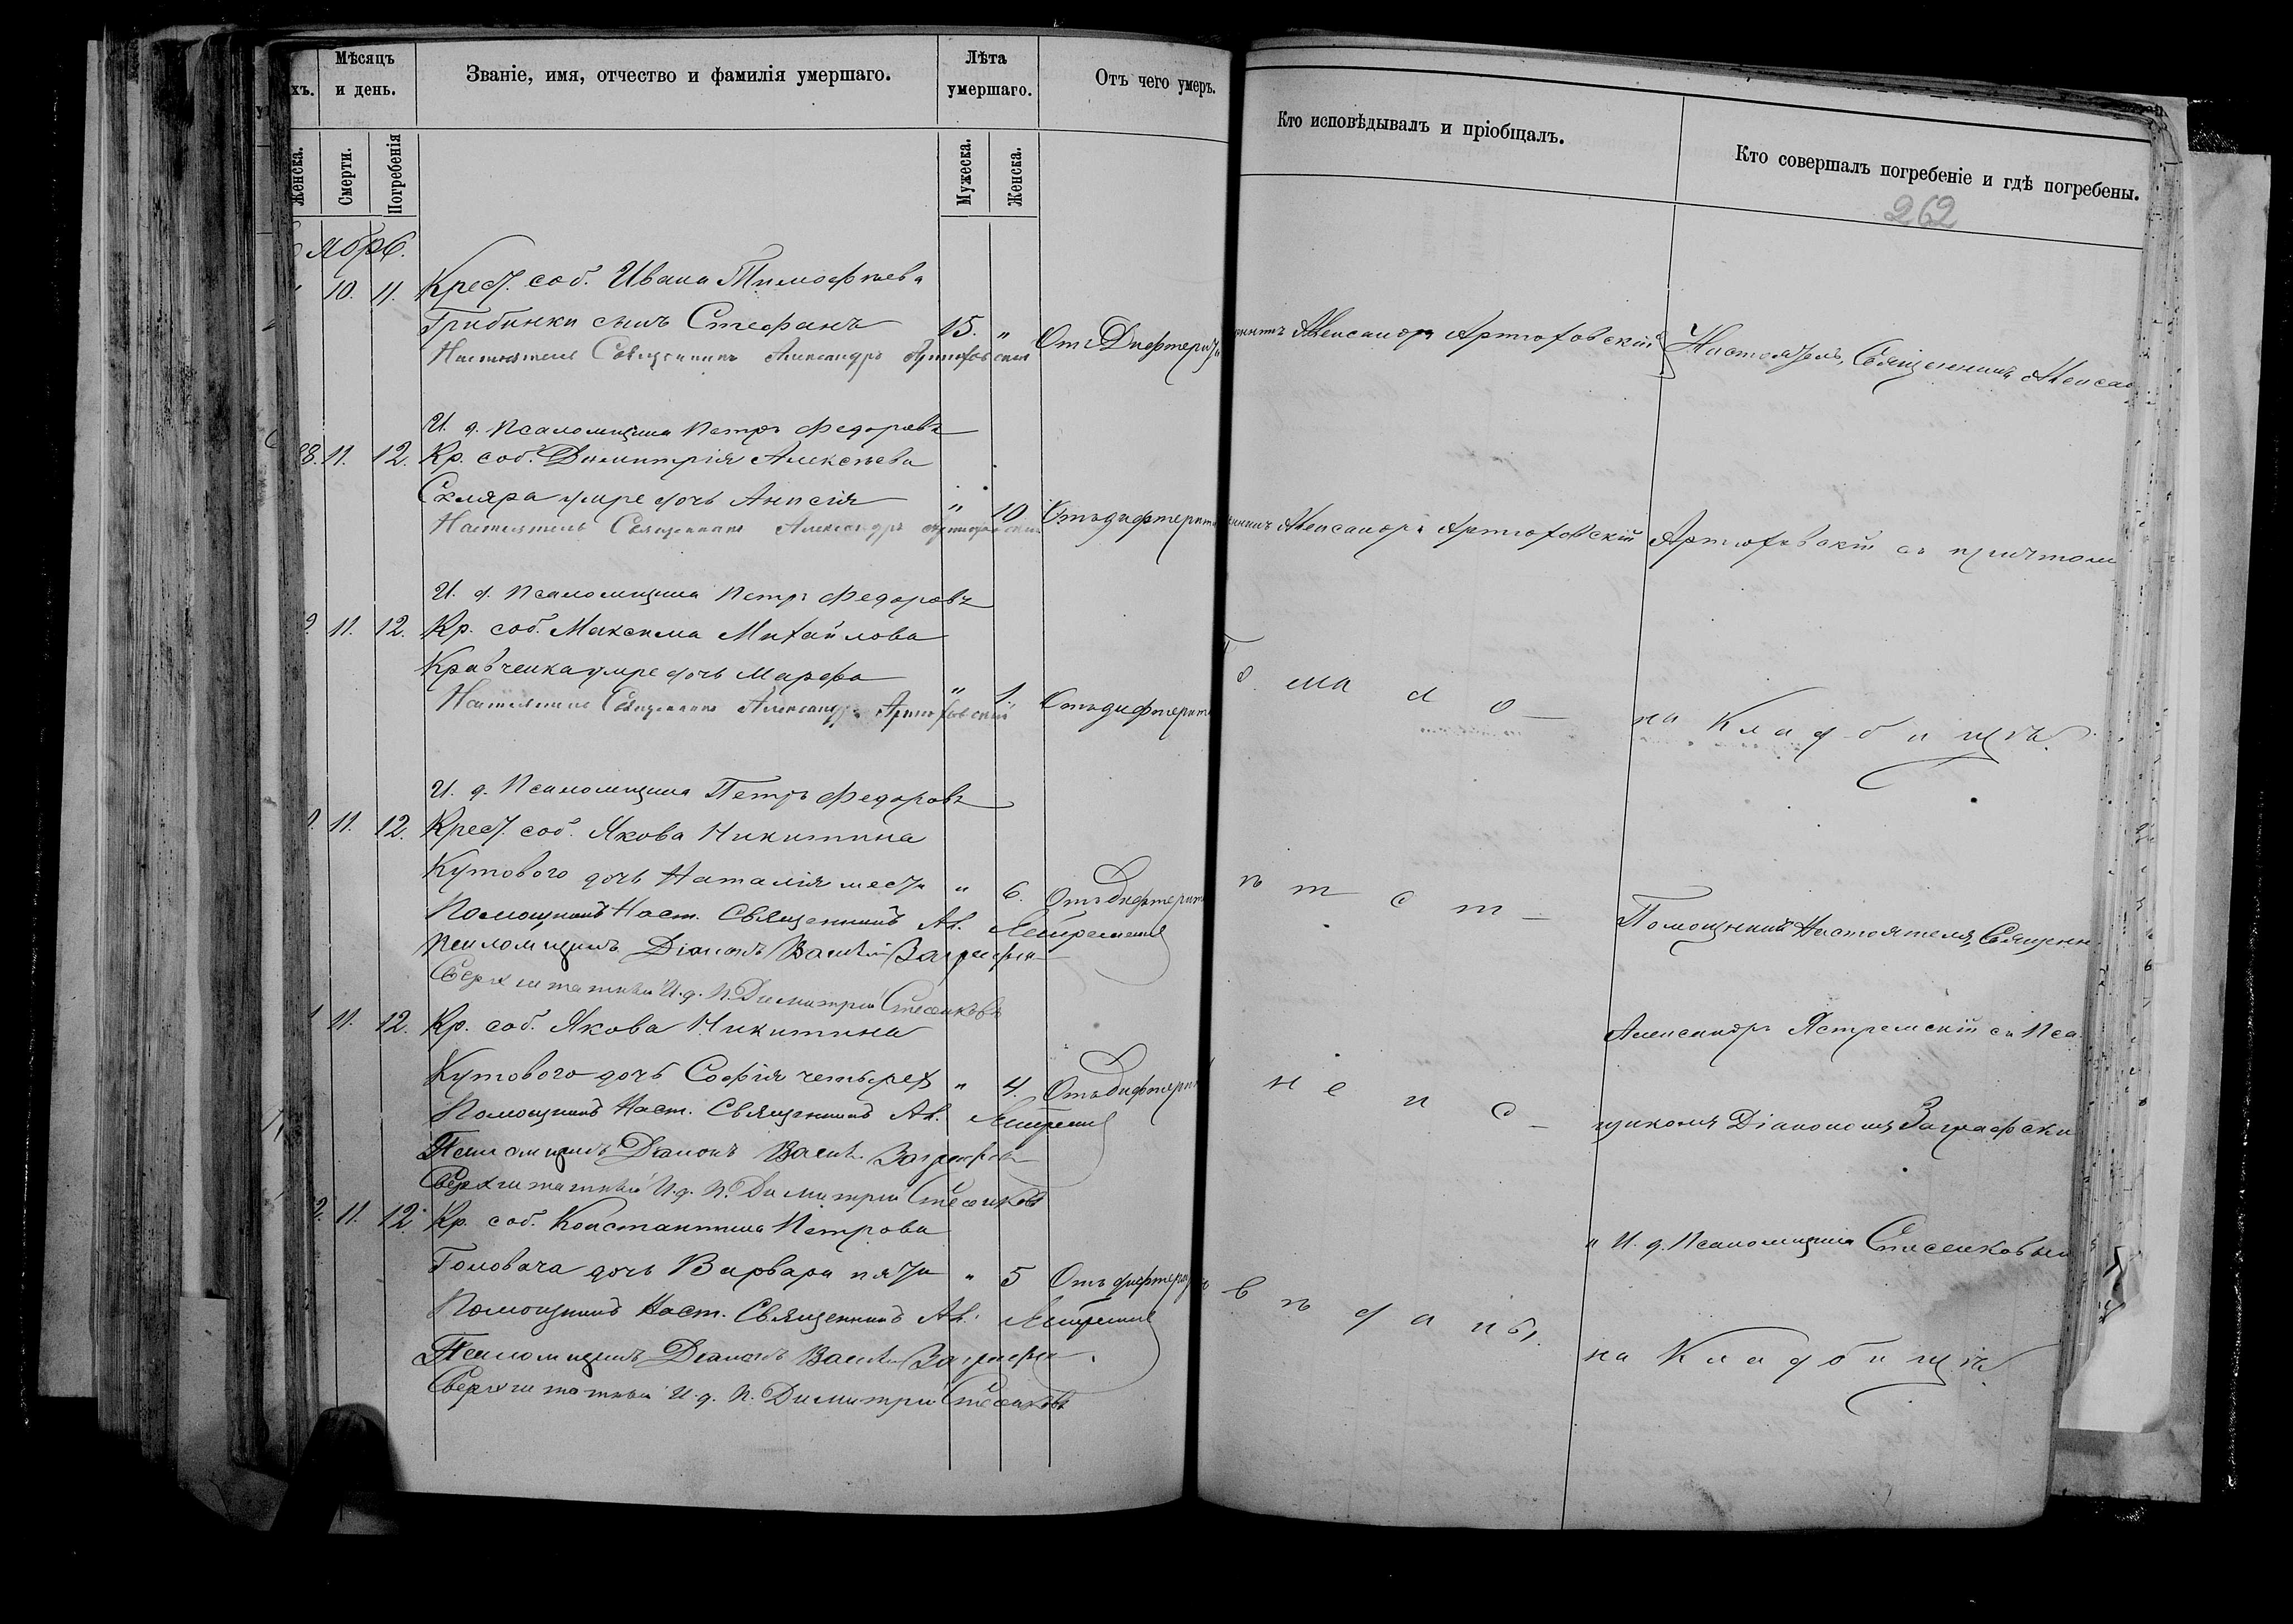 Мѣсяцъ
и день.
Званіе, имя, отчество и фамилія умершаго.
Лѣта
умершаго.
Отъ чего умеръ.
Кто исповѣдывалъ и пріобщалъ.
Кто совершалъ погребеніе и гдѣ погребены.
хъ.
Женска.
Смерти.
Погребенія
Мужеска.
Женска.
262
ября.
10. 11. Крест. соб. Ивана Тимофѣева
Грибинки сынъ Стефанъ 15. " Отъ Дифтерита
Настоятель Священникъ Александръ Артюховскій
И. д. Псаломщика Петръ Федоровъ
28. 11. 12. Кр. соб. Димитрія Алексѣева
Скляра умре дочь Анисія " 10 Отъ дифтерита
Настоятель Священникъ Александръ Артюховскій
И. д. Псаломщика Петръ Федоровъ
9. 11. 12. Кр. соб. Максима Михайлова
Кравченка умре дочь Марфа " 1. Отъ дифтерита
Настоятель Священникъ Александръ Артюховскій
И. д. Псаломщика Петръ Федоровъ
11. 12. Крест. соб. Якова Никитина
Кутового дочь Наталія шести " 6. Отъ дифтерит
Помощникъ Наст. Священникъ Ал. Ястремскій
Псаломщикъ Діаконъ Василій Заграфскі
Сверхштатный И. д. П. Димитрій Стесенковъ
11. 12. Кр. соб. Якова Никитина
Кутового дочь Софія четырех " 4. Отъ дифтерит
Помощникъ Наст. Священникъ Ал. Ястремскій
Псаломщикъ Діаконъ Васил. Заграфскі
Сверхштатный И. д. П. Димитрій Стесенковъ
2. 11. 12. Кр. соб. Константина Петрова
Головача дочь Варвара пяти " 5 Отъ дифтерит
Помощникъ Наст. Священникъ Ал. Ястремскій
Псаломщикъ Діаконъ Васил. Заграфскі
Сверхштатный И. д. П. Димитрій Стесенковъ
енникъ Александръ Артюховскій
енникъ Александръ Артюховскій
ма л о —
ѣ т с т —
н е и с —
в ѣ д а н ы.
Настоятель, Священникъ Алексан
Артюховскій съ причтом
на Кладбищѣ.
Помощникъ Настоятеля, Священн
Александръ Ястремскій съ Пса
щикомъ Діакономъ Заграфски
и И. д. Псаломщика Стесенковым
на Кладбищѣ